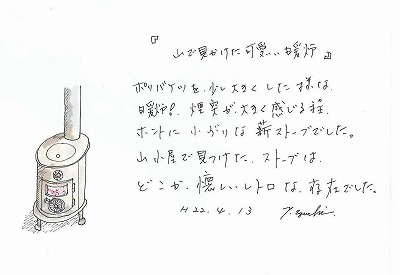 『山で見かけた可愛い暖炉』
ポリバケツを、少し大きくした様な、
暖炉!、煙突が、大きく感じる程、
ホントに小ぶりな薪ストーブでした。
山小屋で見つけた、ストーブは、
どこか、懐しいレトロな、存在でした。
H22.4.13